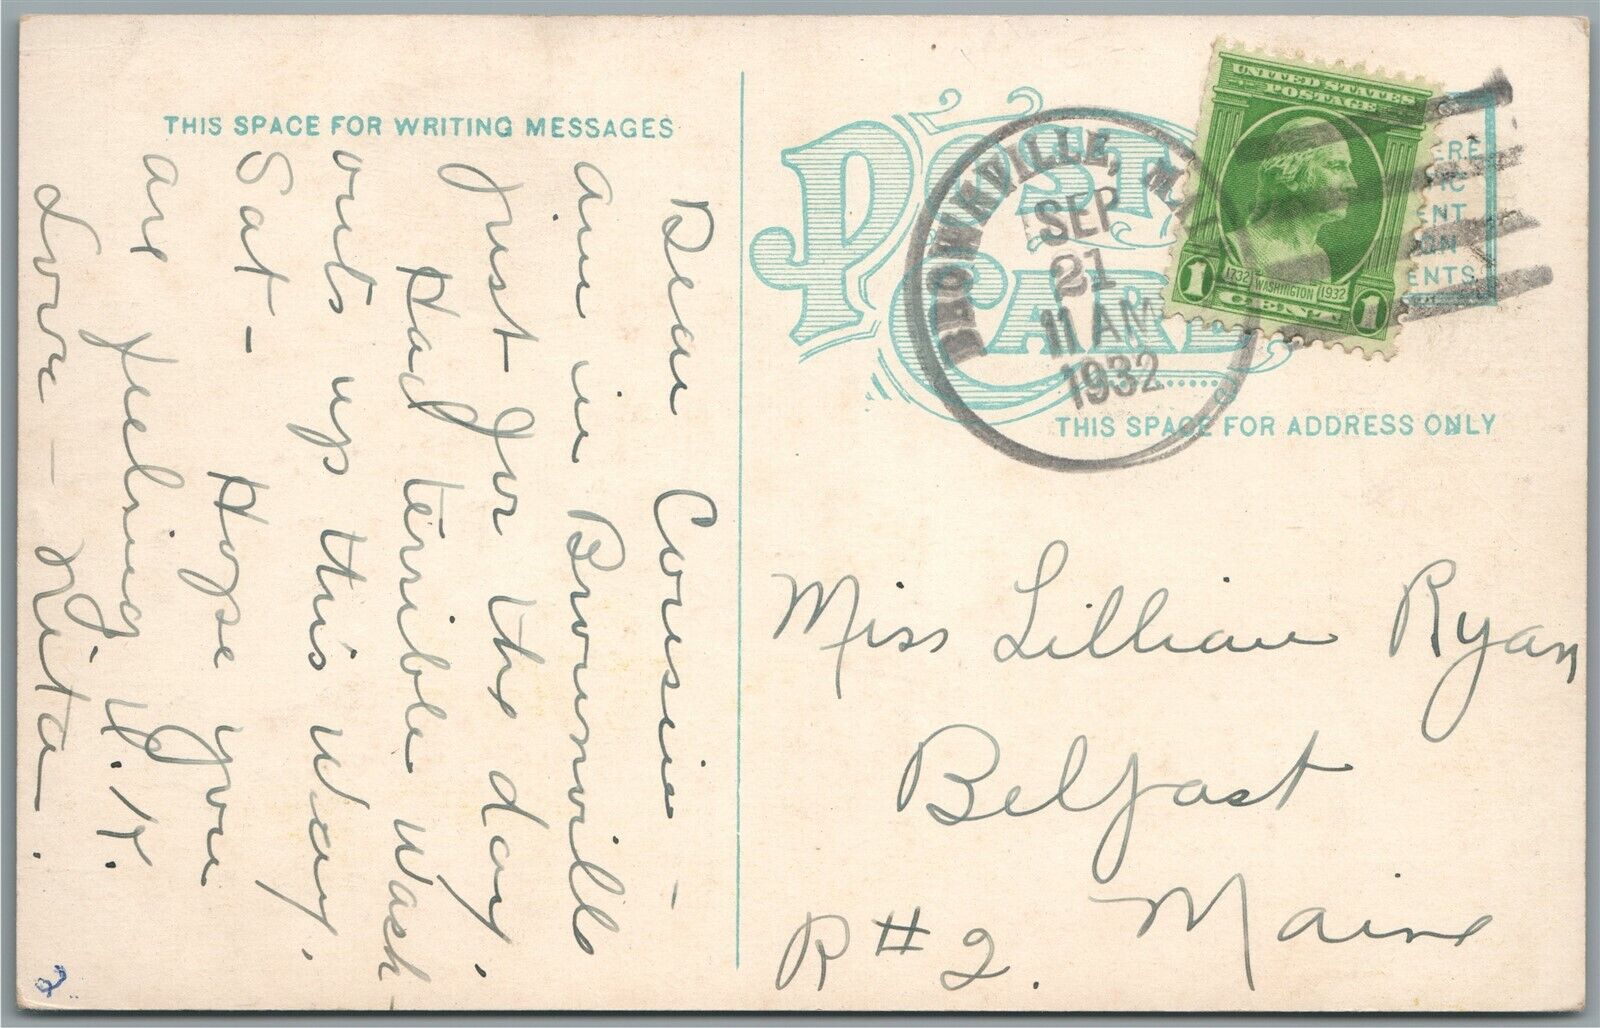 THIS SPACE FOR WRITING MESSAGES
Dear Cousin -
am in Brownville
just for the day.
Had terrible wash
outs up this way.
Sat -
Hope you
are feeling O.K.
Love - Rita.
2
POST
CARD
BROWNVILLE,
SEP
21
11 AM
1932
UNITED STATES
POSTAGE
1732 WASHINGTON 1932
1 CENT 1
THIS SPACE FOR ADDRESS ONLY
Miss Lillian Ryan
Belfast
Maine
R #2.